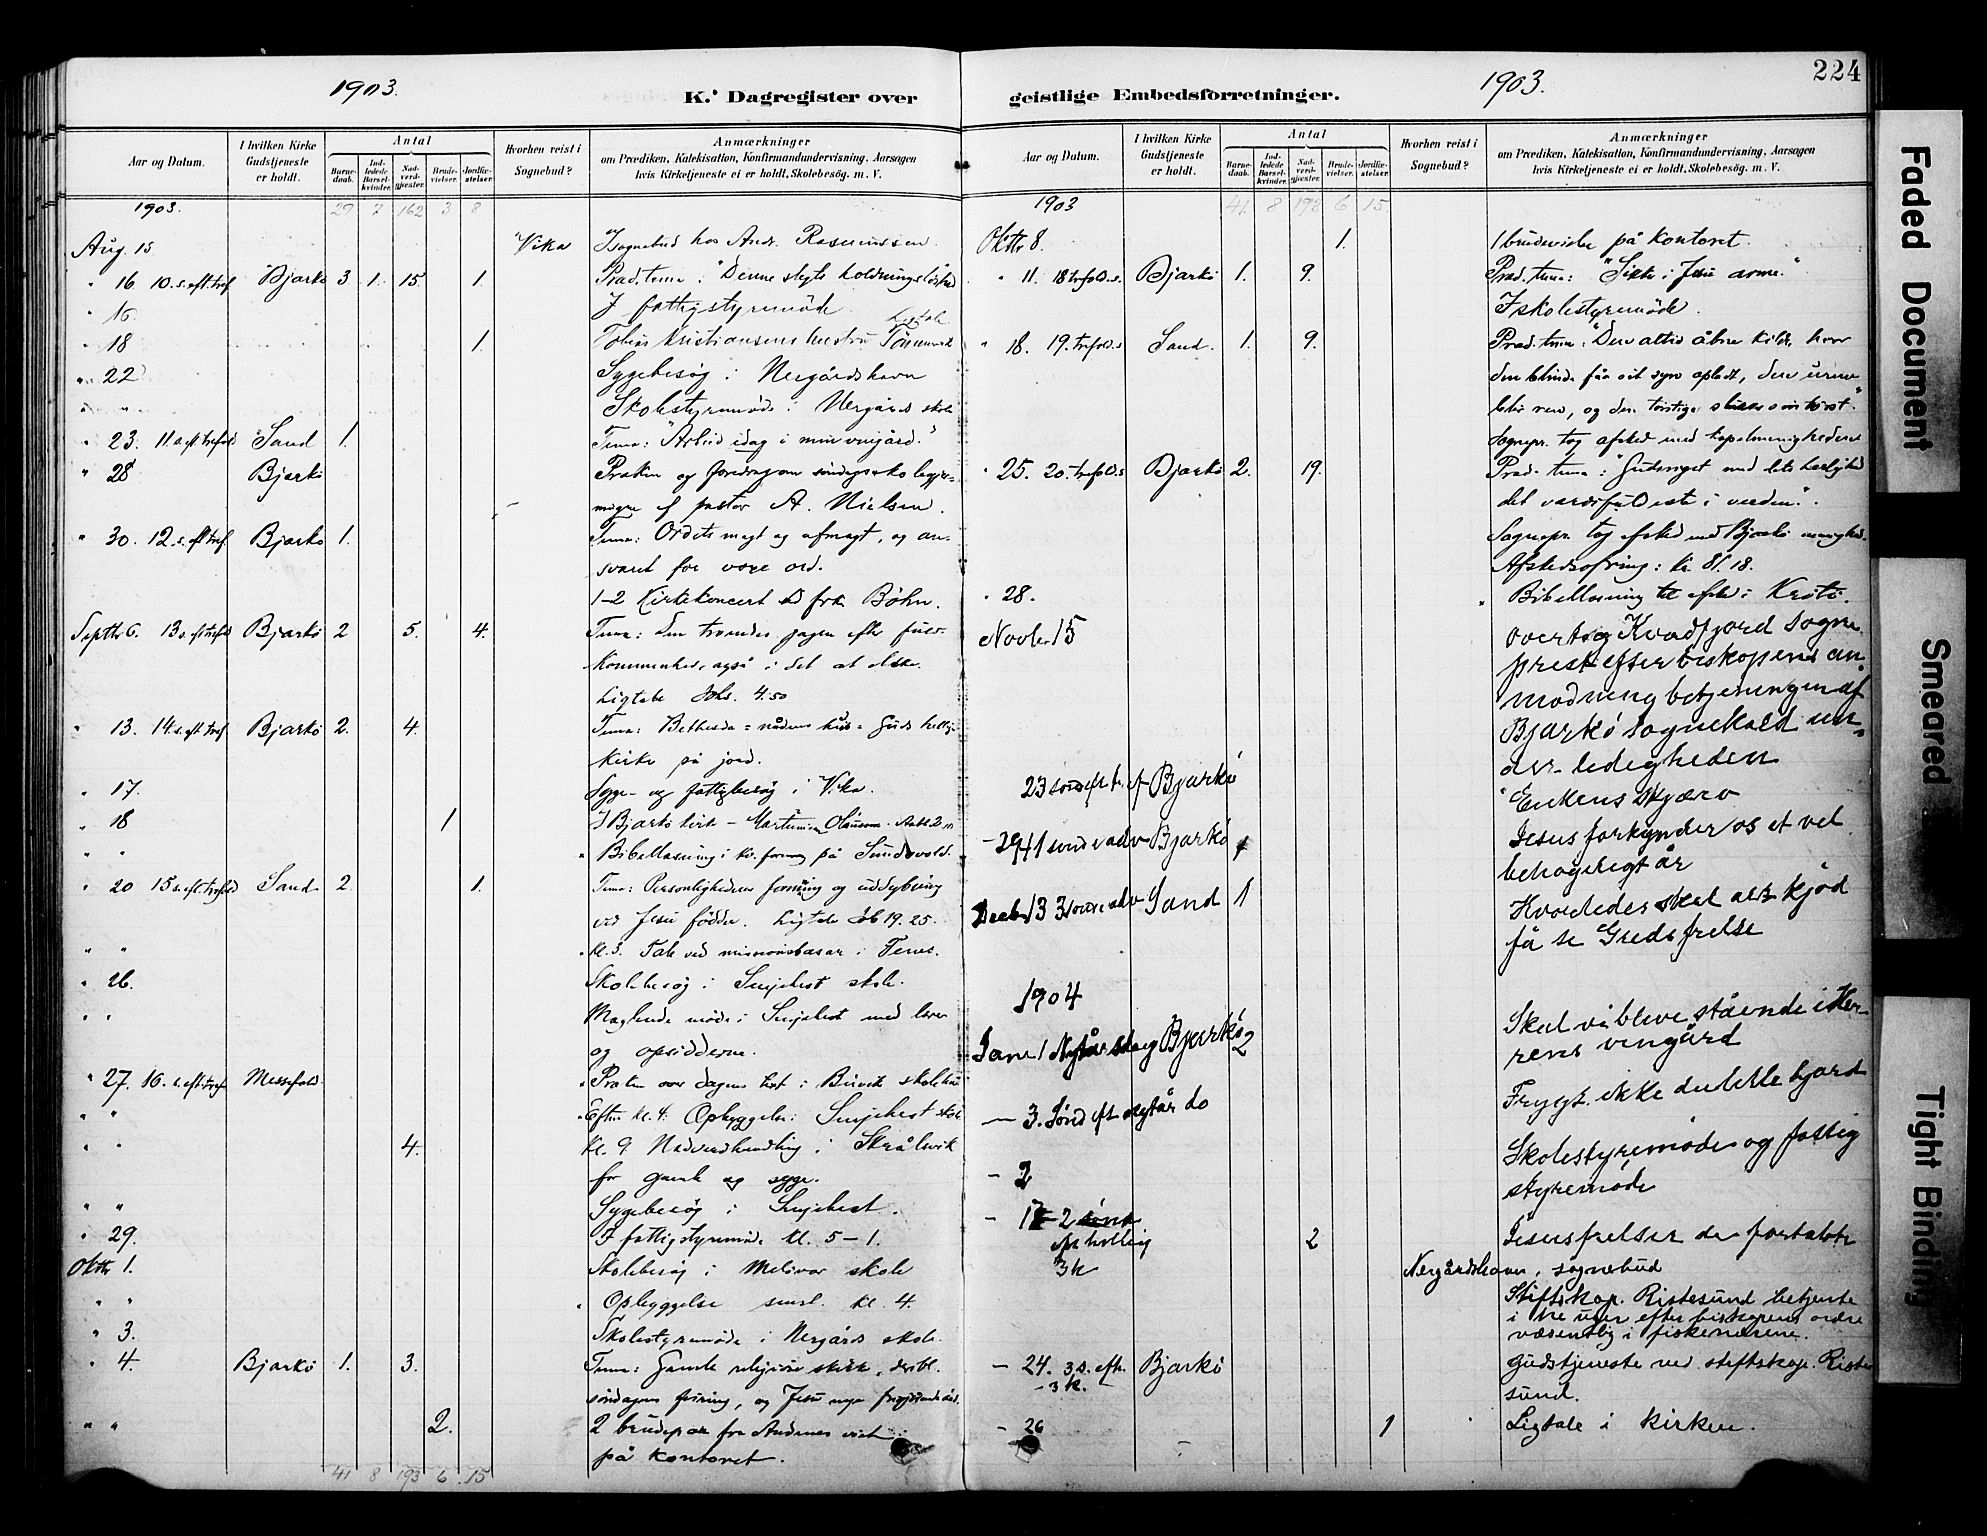 1903.
K. Dagregister over
Aar og Datum.
I hvilken Kirke Gudstjeneste er holdt.
Antal
Barnedaab.
Indledede Barselkvinder.
Nadverdgjester.
Brudevielser.
Jordfæstelser.
Hvorhen reist i Sognebud?
Anmærkninger
om Prædiken, Katekisation, Konfirmandundervisning, Aarsagen
hvis Kirketjeneste ei er holdt, Skolebesög. m. V.
1903. 29 7 162 3 8
Aug. 15 Vika I sognebud hos Andr. Rasmussen.
" 16 10. s. eft. tref. Bjarkö 3 1. 15. 1. Præd. tema: "Denne slegts holdningslöshed
" 16 I fattigstyremöde.
Ligtale
" 18 1. Tobias Kristiansens hustru
" 22 Sygebesög i Nergårdshavn
" " Skolestyremöde i Nergård skole
" 23. 11. s. eft. trefold Sand 1. Tema: "Arbeid idag i min vingård."
" 28 Bjarkö Præken og foredrag om
af pastor A. Nielsen.
" 30. 12. s. eft. tref. Bjarkö 1. Tema: Ordets magt og afmagt, og an-
svaret for vore ord.
1-2 Kirkekoncert frk. Böhn.
Septbr 6. 13. s. ef. trefold Bjarkö 2 5. 4. Tema: Den troendes jagen efter fuld-
kommenhed, også i det at elske.
Ligtale Joh. 4.50
" 13. 14. s. eft. tref. Bjarkö 2. 4. Tema: Bethesda = nådens hus = Guds hellige
kirke på jord.
" 17. Syge- og fattigbesög i Vika.
" 18 1 I Bjarkö kirke –
" " " Bibellæsning i kr. foreng på Sundsvold.
" 20 15 s. eft. trefold Sand 2. 1. Tema: Personlighedens og uddybning
ved Jesu födder. Ligtale Job 19.25.
" " " kl. 3. Tale ved missionsbasar i
" 26. Skolebesög i skole.
" " möde i med lærer
og opsidderne.
" 27. 16. s. eft. tref. Messefald. " Præken over dagens text i skolehus
" " " Efter kl. 4. Opbyggelse i skole
" " 4. kl. 9. Nadverdhandling i
for gamle og syge.
" " Sygebesög i
" 29. I fattigstyremöde kl. 5-1.
Oktbr 1. Skolebesög i Melsvær skole
" " " Opbyggelse smst. kl. 4.
" 3. Skolestyremöde i Nergårds skole.
" 4. Bjarkö 1. 3. Tema: Gamle religiöse skikke, deribl.
söndagens feiring, og Jesu nye
" " 2. 2 brudepar fra Andenes viet
på kontoret.
41 8 193 6 15
1903.
224
geistlige Embedsforretninger.
Aar og Datum.
I hvilken Kirke Gudstjeneste er holdt.
Antal
Barnedaab.
Indledede Barselkvinder.
Nadverdgjester.
Brudevielser.
Jordfæstelser.
Hvorhen reist i Sognebud?
Anmærkninger
om Prædiken, Katekisation, Konfirmandundervisning, Aarsagen
hvis Kirketjeneste ei er holdt, Skolebesög. m. V.
1903 41. 8 193 6 15.
Oktbr 8. 1. 1 brudevielse på kontoret.
" 11. 18 trefold. s. Bjarkö 1. 9. Præd. tema: "Sikker i Jesu arme."
I skolestyremöde.
" 18. 19. trefold. s Sand. 1. 9. Præd. tema: "Den altid åbne kilde, hvor
den blinde får sit syn opladt, den urene
blir ren, og den törstige slukker sin törst."
Sognepr. tog afsked med kapelmenigheden
" 25. 20. trefold. s Bjarkö 2. 19. Præd. tema: "Gudsriget med dets herlighed
det værdifuldeste i verden".
Sognepr. tog afsked med Bjarkö menighed.
Afskedsofring: kr. 81.18.
" 28. " Bibellæsning til afsked i
Novbr 15 overtog Kvædfjord sogne
prest efter biskopens an-
modning betjeningen af
Bjarkö sognekald un-
der ledigheden
23 sönd eft tref Bjarkö "Enkens skjærv
– 29 1 sönd i adv Bjarkö 1 Jesus forkynder os et vel
behageligt år
Decbr 13 3 sönd i adv Sand 1 Hvorledes skal alt kjöd
få se Guds frelse
1904
Jan 1 Nytårsdag Bjarkö 2 Skal vi blive stående i Her-
rens vingård
– 3. Sönd eft nytår do Frygt ikke du lille hjord
– 2 Skolestyremöde og fattig
styremöde
– 17 2 sönd
eft hellig
3 k 2 Jesus frelser de fortabte
Nergårdshavn, sognebud
Stiftskap. Ristesund betjente
i uger efter biskopens ordre
væsentlig i fiskeværene.
– 24. 3 s. efth. Bjarkö Gudstjeneste ved stiftskap. Riste
– 3 k. sund.
– 26 1 Ligtale i kirken.
Faded Document
Smeared
Tight Binding